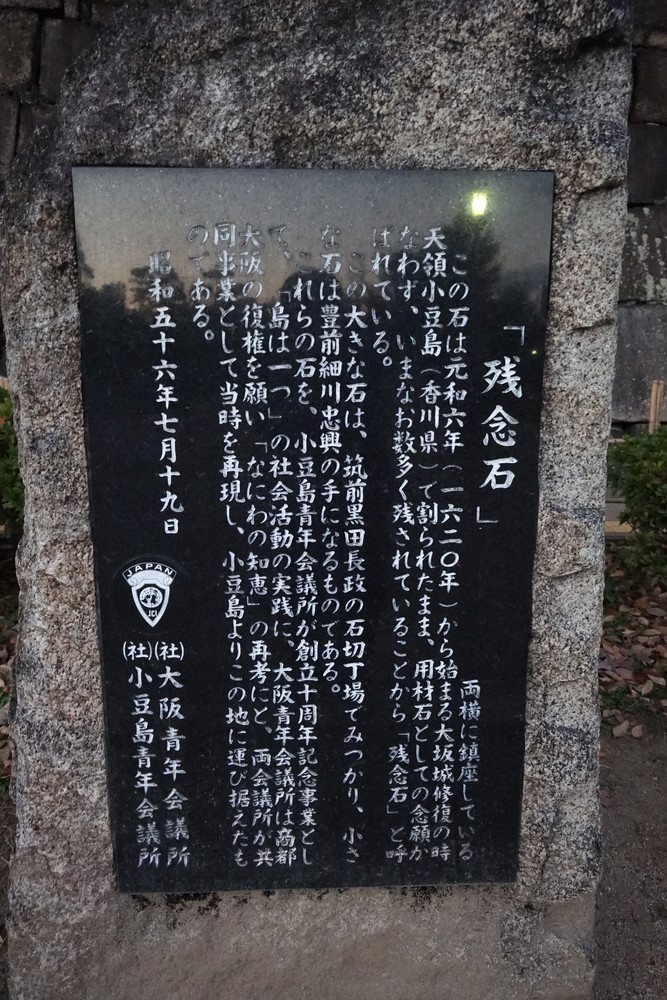 「残念石」
両横に鎮座している
この石は元和六年(一六二〇年)から始まる大坂城修復の時
天領小豆島(香川県)で割られたまま、用材石としての念願か
なわず、いまなお数多く残されていることから「残念石」と呼
ばれている。
この大きな石は、筑前黒田長政の石切丁場でみつかり、小さ
な石は豊前細川忠興の手になるものである。
これらの石を、小豆島青年会議所が創立十周年記念事業とし
て、「島は一つ」の社会活動の実践に、大阪青年会議所は商都
大阪の復権を願い「なにわの知恵」の再考にと、両会議所が共
同事業として当時を再現し、小豆島よりこの地に運び据えたも
のである。
昭和五十六年七月十九日
JAPAN
JCI
(社)大阪青年会議所
(社)小豆島青年会議所